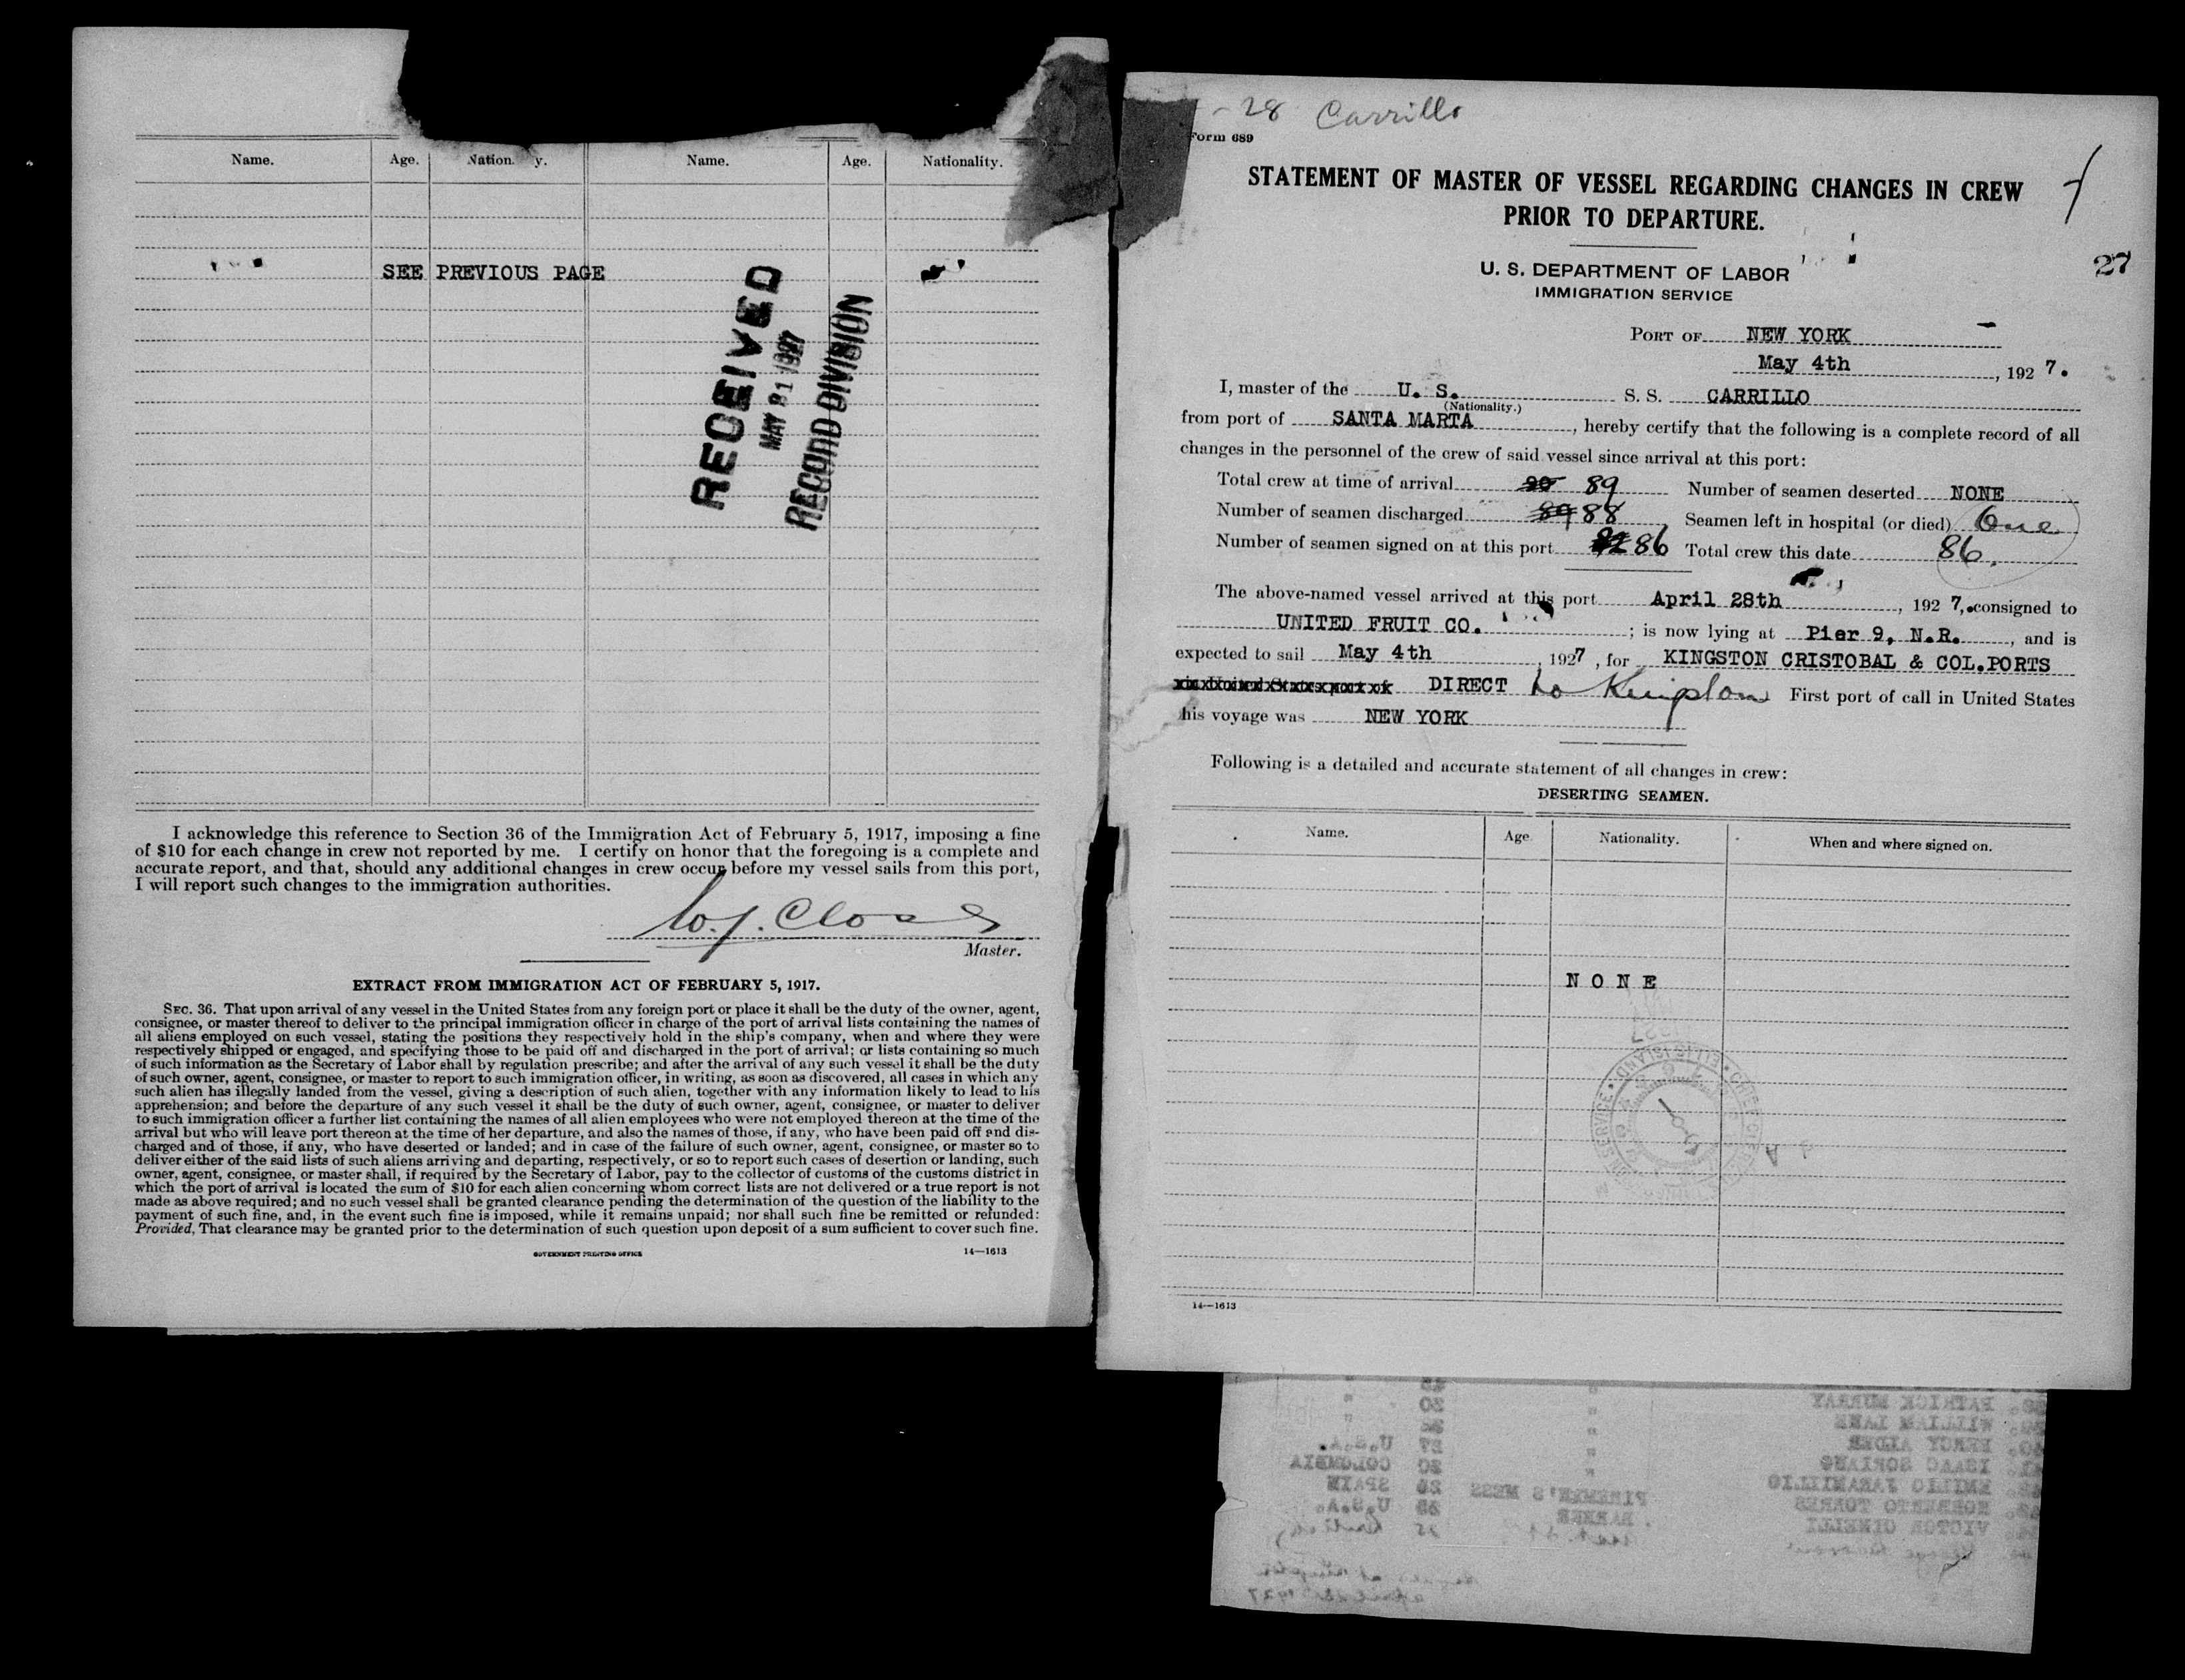 Name. Age. Nation y. Name. Age. Nationality.
SEE PREVIOUS PAGE
RECEIVED
MAY 21 1927
RECORD DIVISION
I acknowledge this reference to Section 36 of the Immigration Act of February 5, 1917, imposing a fine
of $10 for each change in crew not reported by me. I certify on honor that the foregoing is a complete and
accurate report, and that, should any additional changes in crew occur before my vessel sails from this port,
I will report such changes to the immigration authorities.
W. J. Close
Master.
EXTRACT FROM IMMIGRATION ACT OF FEBRUARY 5, 1917.
SEC. 36. That upon arrival of any vessel in the United States from any foreign port or place it shall be the duty of the owner, agent,
consignee, or master thereof to deliver to the principal immigration officer in charge of the port of arrival lists containing the names of
all aliens employed on such vessel, stating the positions they respectively hold in the ship's company, when and where they were
respectively shipped or engaged, and specifying those to be paid off and discharged in the port of arrival; or lists containing so much
of such information as the Secretary of Labor shall by regulation prescribe; and after the arrival of any such vessel it shall be the duty
of such owner, agent, consignee, or master to report to such immigration officer, in writing, as soon as discovered, all cases in which any
such alien has illegally landed from the vessel, giving a description of such alien, together with any information likely to lead to his
apprehension; and before the departure of any such vessel it shall be the duty of such owner, agent, consignee, or master to deliver
to such immigration officer a further list containing the names of all alien employees who were not employed thereon at the time of the
arrival but who will leave port thereon at the time of her departure, and also the names of those, if any, who have been paid off and dis-
charged and of those, if any, who have deserted or landed; and in case of the failure of such owner, agent, consignee, or master so to
deliver either of the said lists of such aliens arriving and departing, respectively, or so to report such cases of desertion or landing, such
owner, agent, consignee, or master shall, if required by the Secretary of Labor, pay to the collector of customs of the customs district in
which the port of arrival is located the sum of $10 for each alien concerning whom correct lists are not delivered or a true report is not
made as above required; and no such vessel shall be granted clearance pending the determination of the question of the liability to the
payment of such fine, and, in the event such fine is imposed, while it remains unpaid; nor shall such fine be remitted or refunded:
Provided, That clearance may be granted prior to the determination of such question upon deposit of a sum sufficient to cover such fine.
GOVERNMENT PRINTING OFFICE 14—1613
- 28 Carrillo
Form 689
STATEMENT OF MASTER OF VESSEL REGARDING CHANGES IN CREW
PRIOR TO DEPARTURE.
U. S. DEPARTMENT OF LABOR
IMMIGRATION SERVICE
27
PORT OF NEW YORK
May 4th, 192 7.
I, master of the U. S. S. S. CARRILLO
(Nationality.)
from port of SANTA MARTA, hereby certify that the following is a complete record of all
changes in the personnel of the crew of said vessel since arrival at this port:
Total crew at time of arrival 90 89 Number of seamen deserted NONE
Number of seamen discharged 89 88 Seamen left in hospital (or died) One
Number of seamen signed on at this port 86 Total crew this date 86.
The above-named vessel arrived at this port April 28th, 192 7, consigned to
UNITED FRUIT CO. ; is now lying at Pier 9, N.R., and is
expected to sail May 4th, 1927, for KINGSTON CRISTOBAL & COL.PORTS
DIRECT to Kingston First port of call in United States
his voyage was NEW YORK
Following is a detailed and accurate statement of all changes in crew:
DESERTING SEAMEN.
Name. Age Nationality. When and where signed on.
NONE
14—1613
PATRICK MURRAY " 30 "
WILLIAM LANE "
PERCY " 27 U.S.A.
ISAAC SORIANO " 30 COLOMBIA
EMILIO JARAMILLIO FIREMEN'S MESS SPAIN
NORBERTO TORRES U.S.A.
VICTOR